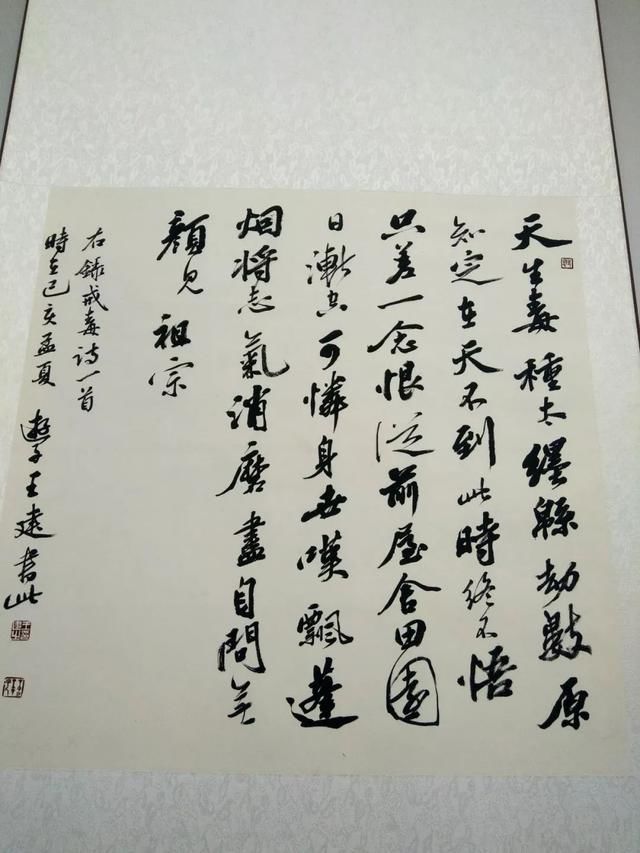 天生毒種太纏緜劫數原
知定在天不到此時終不悟
只差一念恨從前屋舍田園
日漸空可憐身世嘆飄蓬
烟將志氣消磨盡自問無
顏見祖宗
右錄戒毒詩一首
時在己亥孟夏 遊子王建書此